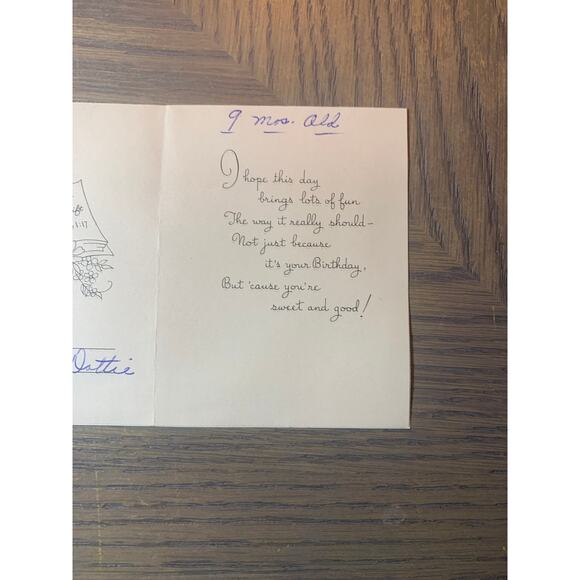 9 Mos. Old
I hope this day
brings lots of fun
The way it really should–
Not just because
it's your Birthday,
But 'cause you're
sweet and good!
Dottie